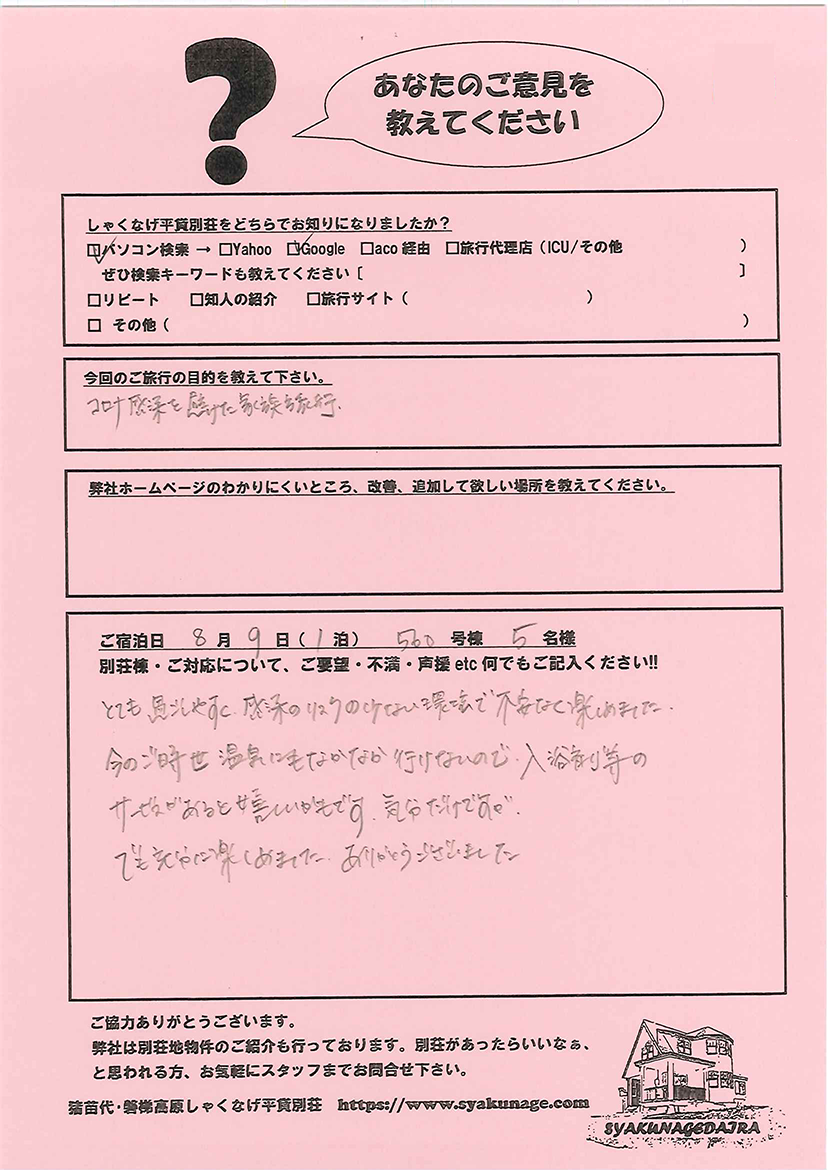 ?
あなたのご意見を
教えてください
しゃくなげ平貸別荘をどちらでお知りになりましたか？
☑パソコン検索 → □Yahoo ☑Google □aco 経由 □旅行代理店（ICU/その他 ）
ぜひ検索キーワードも教えてください［ ］
□リピート □知人の紹介 □旅行サイト（ ）
□ その他（ ）
今回のご旅行の目的を教えて下さい。
コロナ感染を避けた家族旅行.
弊社ホームページのわかりにくいところ、改善、追加して欲しい場所を教えてください。
ご宿泊日 8 月 9 日（ 1 泊） 560 号棟 5 名様
別荘棟・ご対応について、ご要望・不満・声援 etc 何でもご記入ください!!
とても過ごしやすく、感染のリスクの少ない環境で不安なく楽しめました.
今のご時世 温泉にもなかなか行けないので、入浴剤等の
サービスがあると嬉しいかもです. 気分だけですが.
でも充分に楽しめました. ありがとうございました
ご協力ありがとうございます。
弊社は別荘地物件のご紹介も行っております。別荘があったらいいなぁ、
と思われる方、お気軽にスタッフまでお問合せ下さい。
猪苗代・磐梯高原しゃくなげ平貸別荘 https://www.syakunage.com
SYAKUNAGEDAIRA